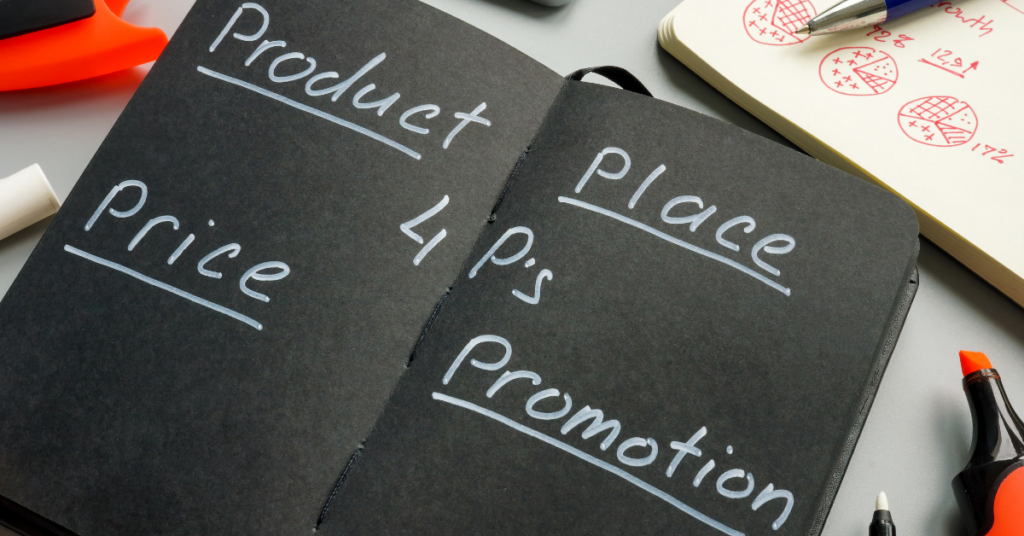 Product
Price
4 P's
Place
Promotion
72%
12,9
17%